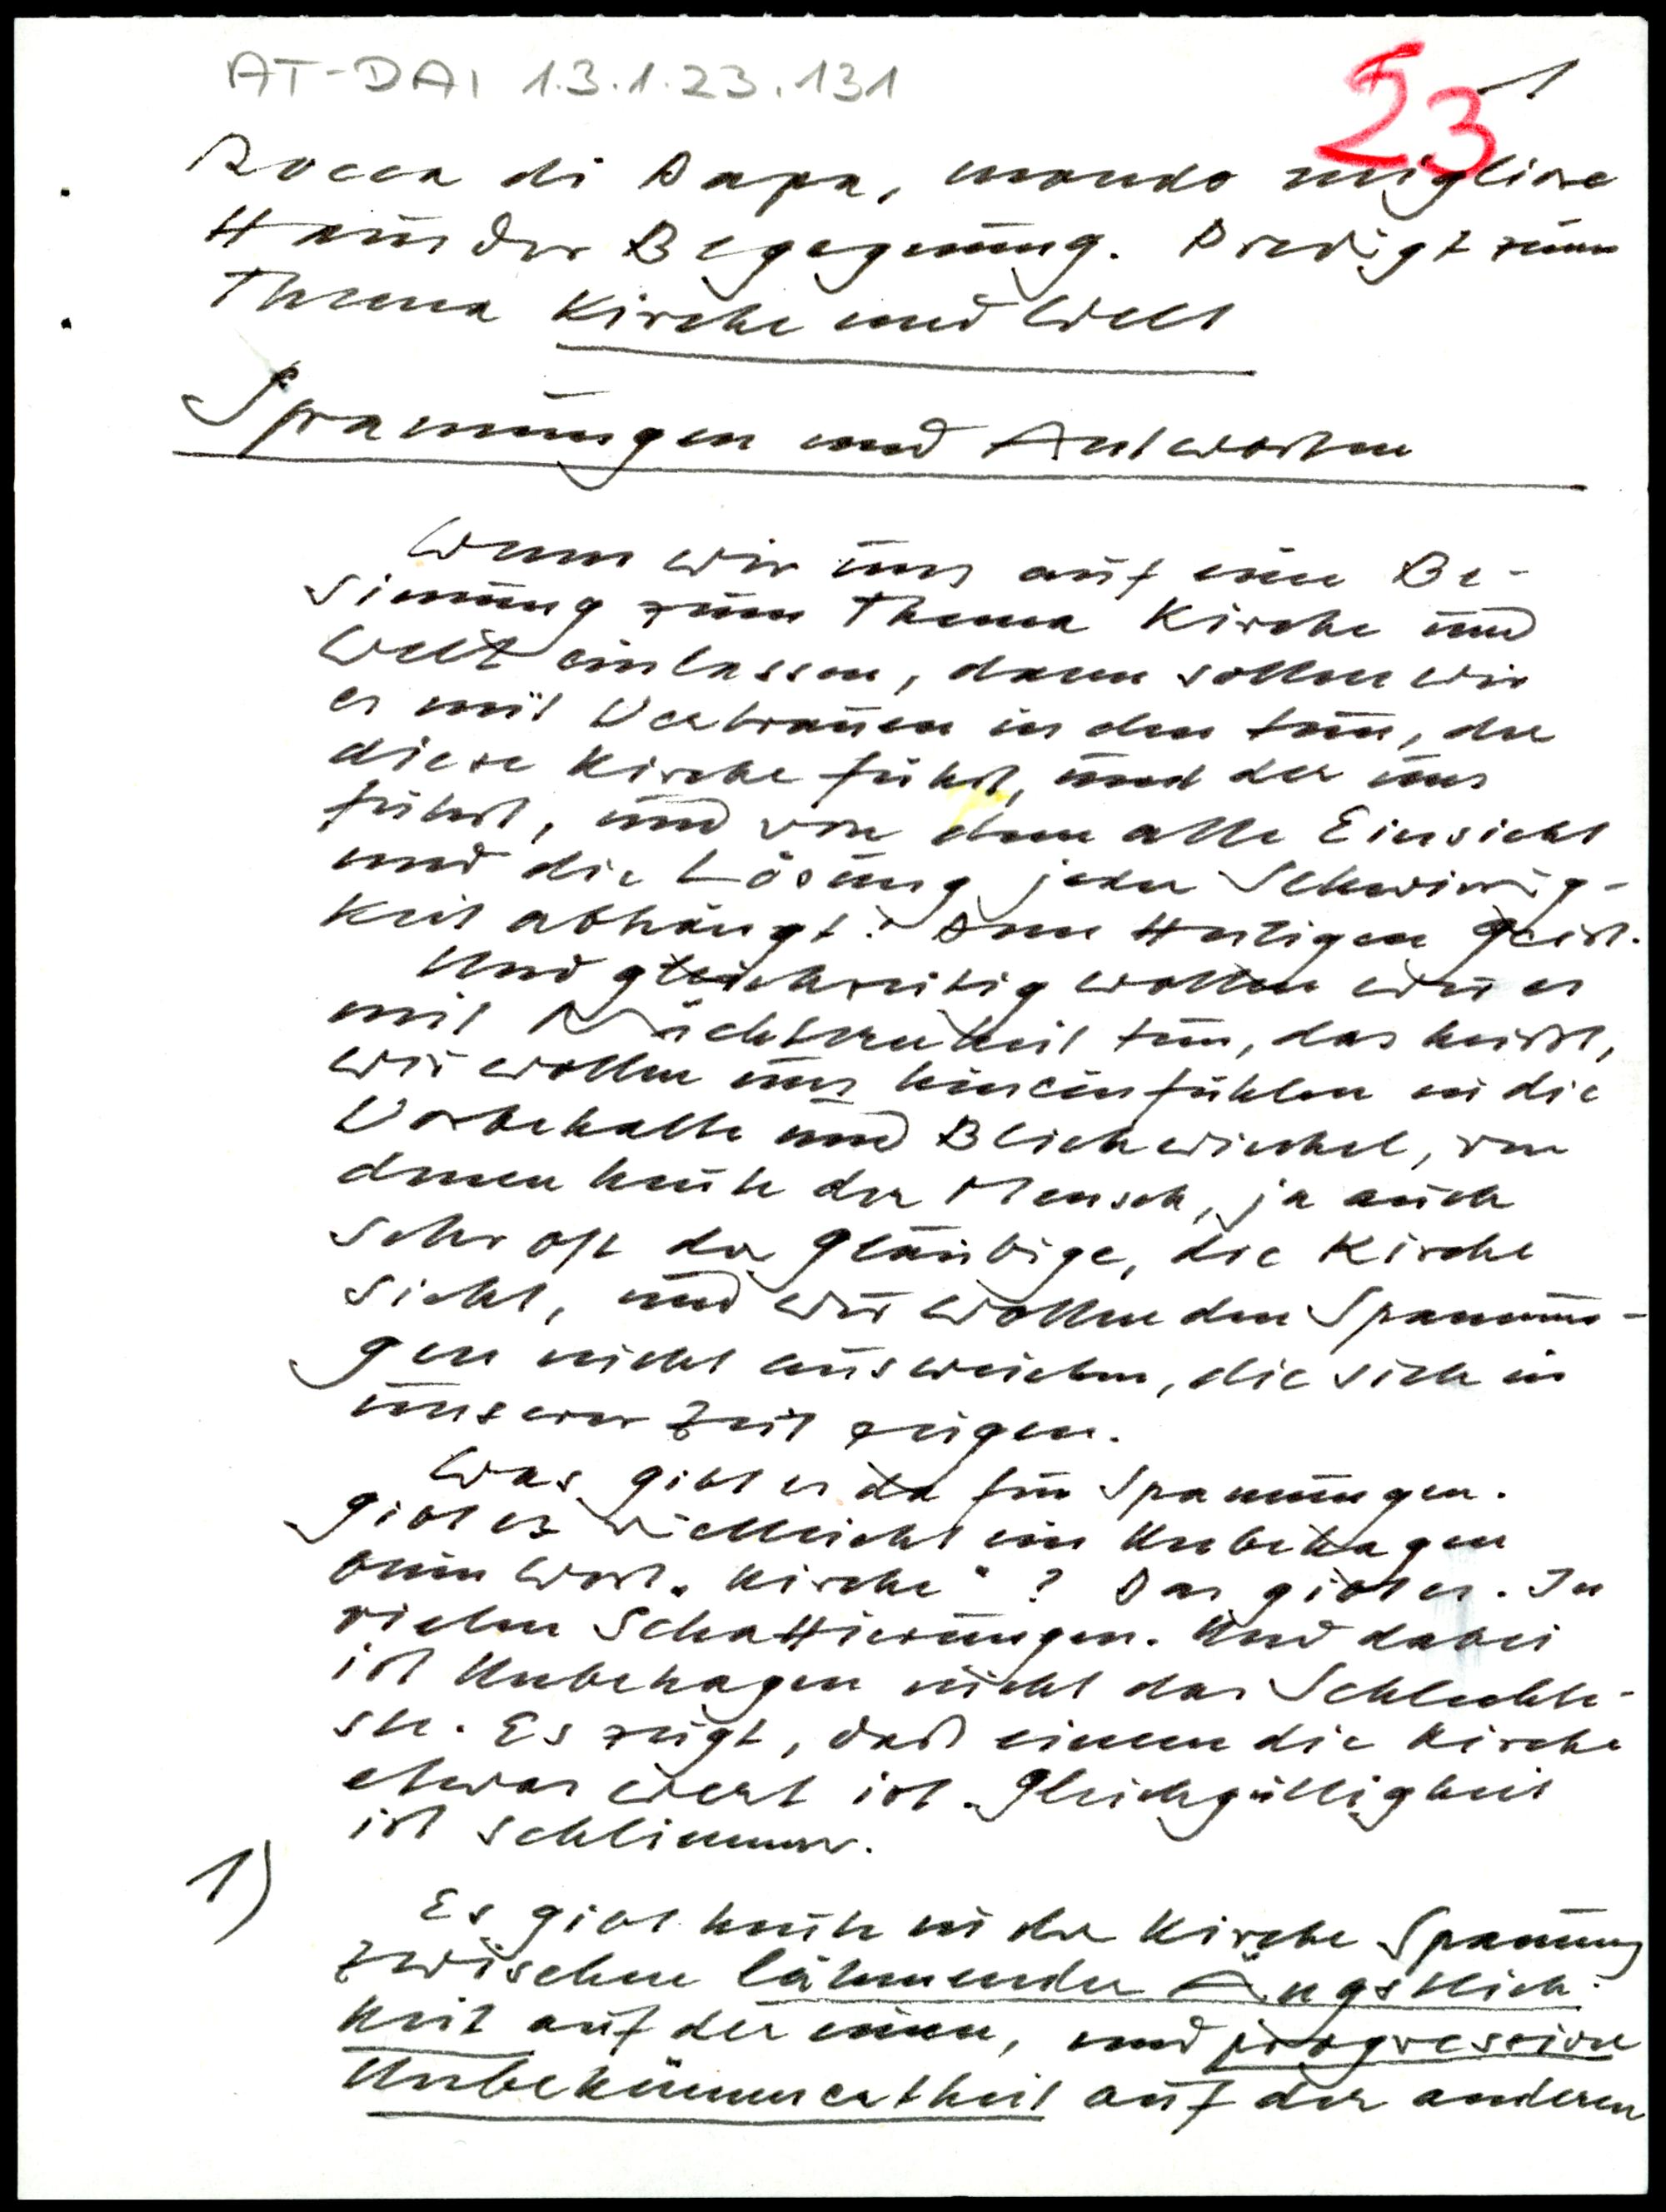 AT-DAI 1.3.1.23.131
23
1
Rocca di Papa, mondo migliore
Haus der Begegnung. Predigt zum
Thema Kirche und Welt
Spannungen und Antworten
Wenn wir uns auf eine Be-
sinnung zum Thema Kirche und
Welt einlassen, dann sollen wir
es mit Vertrauen in den tun, der
diese Kirche führt, und der uns
führt, und von dem alle Einsicht
und die Lösung jeder Schwierig-
keit abhängt: Dem Heiligen Geist.
Und gleichzeitig wollen wir es
mit Nüchternheit tun, das heißt,
wir wollen uns hineinfühlen in die
Vorbehalte und Blickwinkel, von
denen heute der Mensch, ja auch
sehr oft der Gläubige, die Kirche
sieht, und wir wollen den Spannun-
gen nicht ausweichen, die sich in
unserer Zeit zeigen.
Was gibt es da für Spannungen.
Gibt es vielleicht ein Unbehagen
beim Wort „Kirche"? Das gibt es. In
vielen Schattierungen. Und dabei
ist Unbehagen nicht das Schlechte-
ste. Es zeigt, daß einem die Kirche
etwas wert ist. Gleichgültigkeit
ist schlimmer.
1)
Es gibt heute in der Kirche Spannung
zwischen lähmender Ängstlich-
keit auf der einen, und progressive
Unbekümmertheit auf der anderen